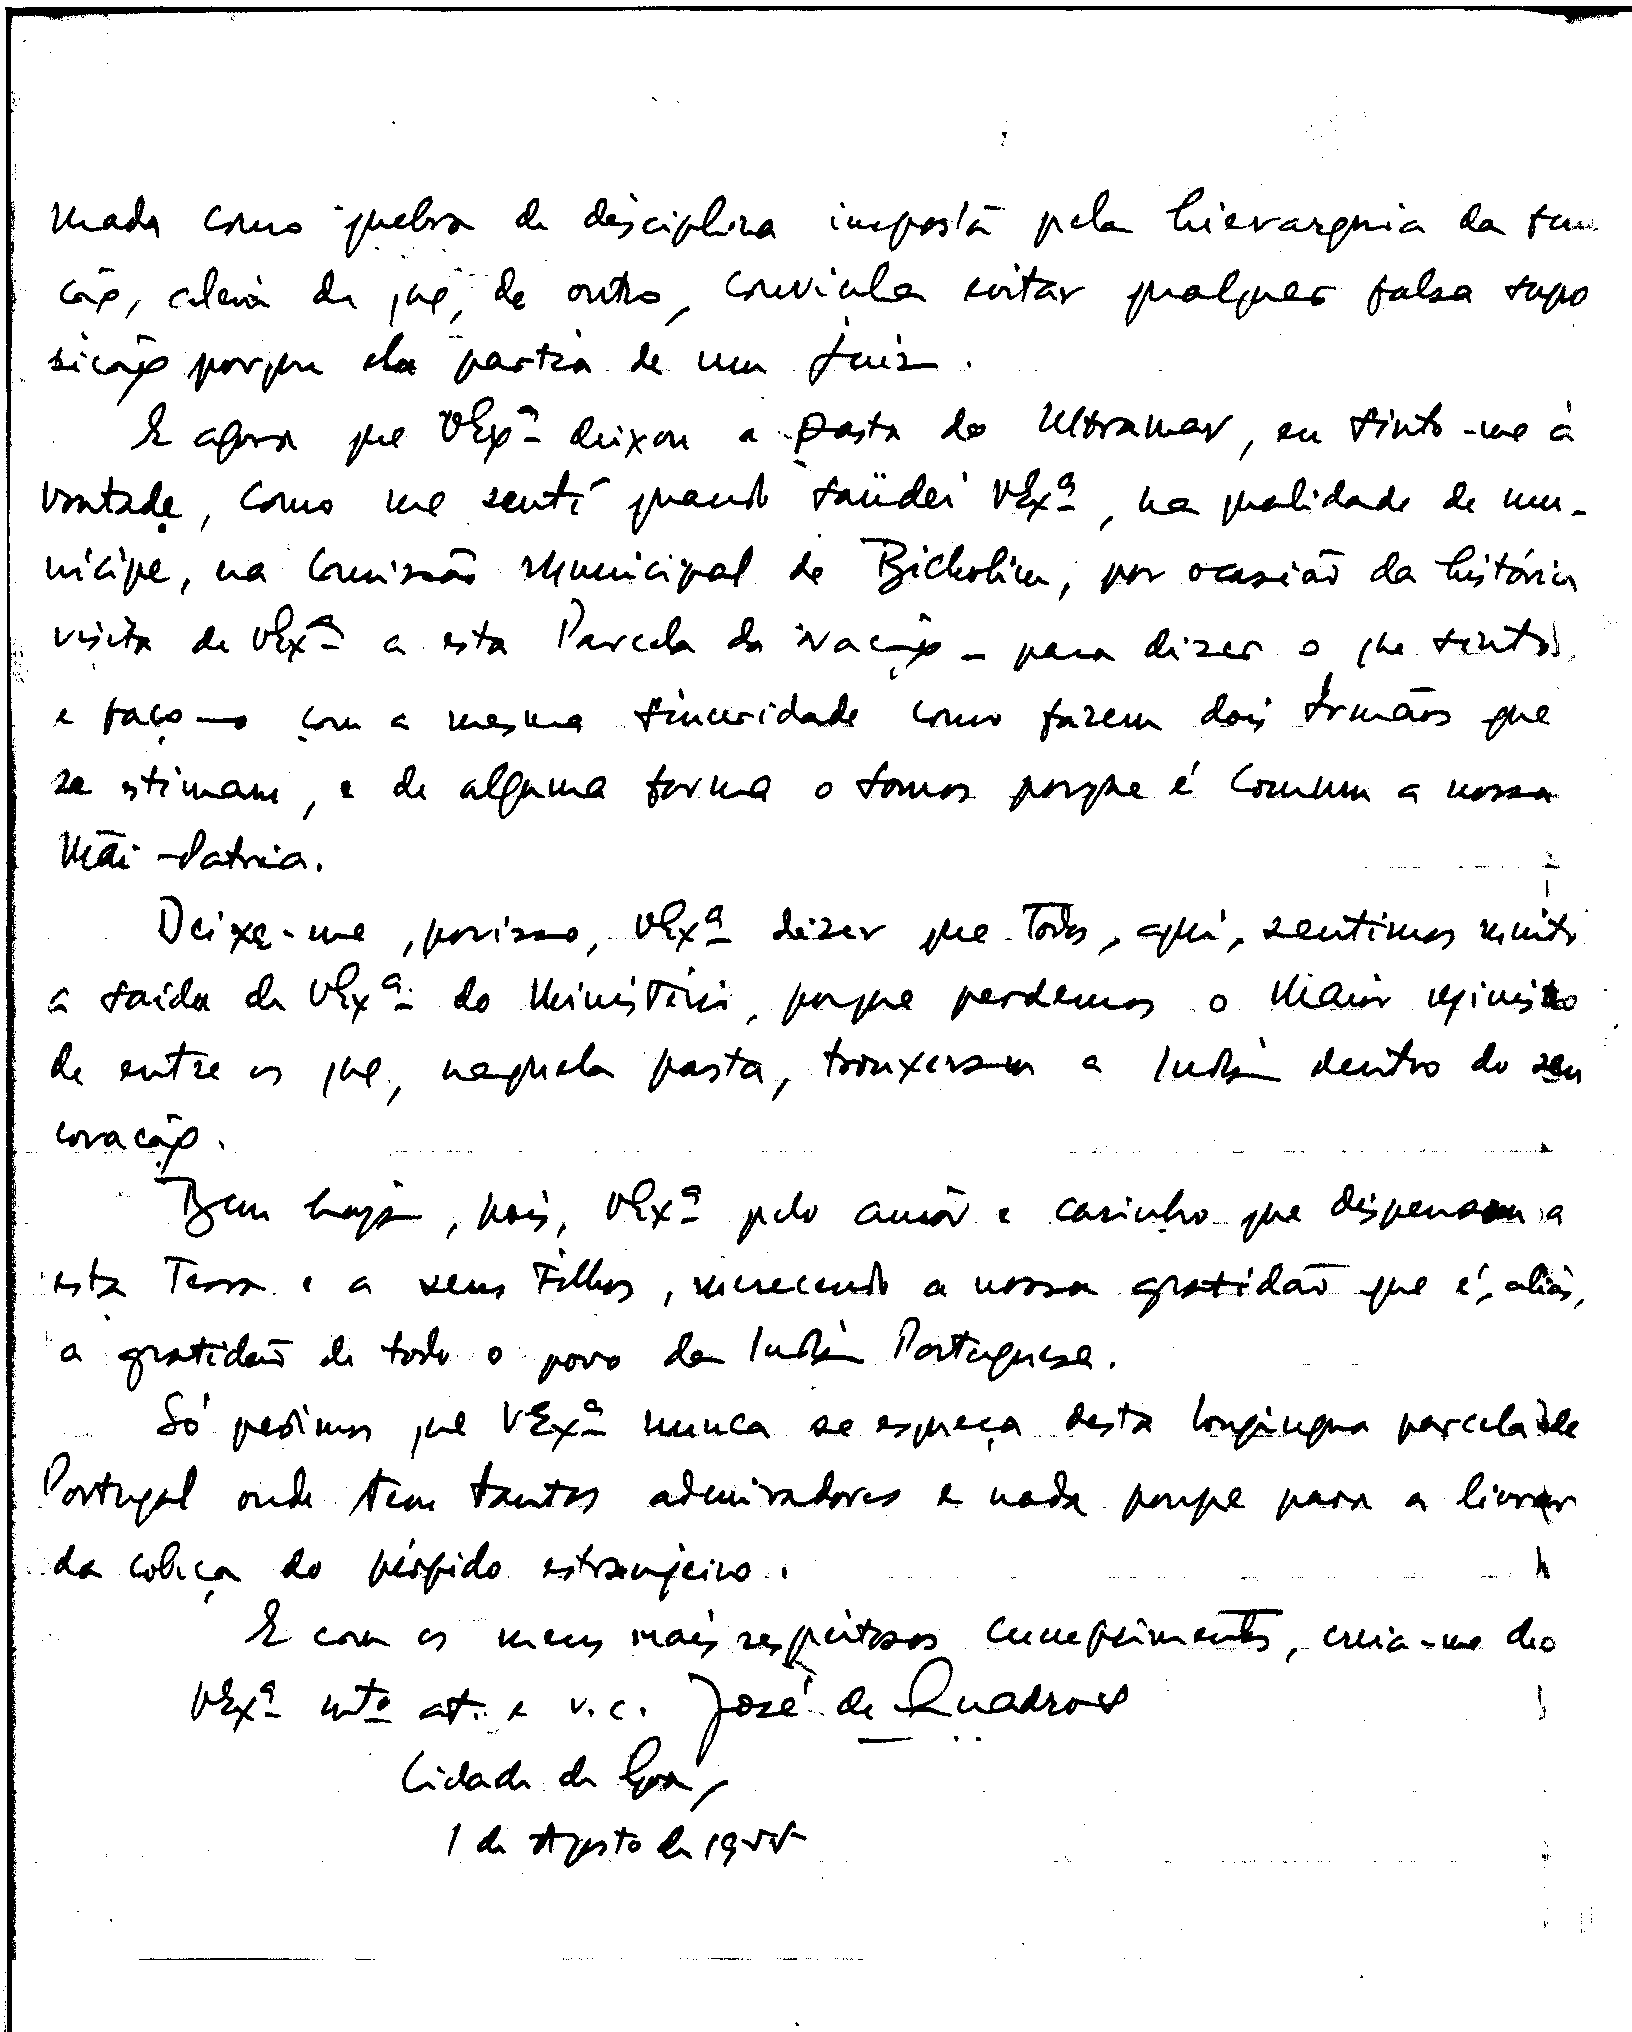 mada como quebra de disciplina imposta pela hierarquia da fun
ção, alem de que, de outro, convinha evitar qualquer falsa supo
sição porque ela partia de um juiz.
E agora que VExª deixou a pasta do Ultramar, eu sinto-me à
vontade, como me sentí quando saüdei VExª, na qualidade de mu-
nicipe, na Comissão Municipal de Bicholim, por ocasião da histórica
visita de VExª a esta Parcela da Nação - para dizer o que sinto,
e faço-o com a mesma sinceridade como fazem dois Irmãos que
se estimam, e de alguma forma o somos porque é comum a nossa
Mãi-Patria.
Deixe-me, porisso, VExª dizer que todos, aqui, sentimos muito
a saida de VExª do Ministério, porque perdemos o Maior Ministro
de entre os que, naquela pasta, trouxeram a India dentro do seu
coração.
Bem haja, pois, VExª pelo amôr e carinho que dispensou a
esta Terra e a seus Filhos, merecendo a nossa gratidão que é, aliás,
a gratidão de todo o povo da India Portuguesa.
Só pedimos que VExª nunca se esqueça desta longinqua parcela de
Portugal onde tem tantos admiradores e nada poupe para a livrar
da cobiça do pérfido estranjeiro.
E com os meus mais respeitosos cumprimentos, creia-me de
VExª mtº at. e v.c. José de Quadros
Cidade de Goa,
1 de Agosto de 1955